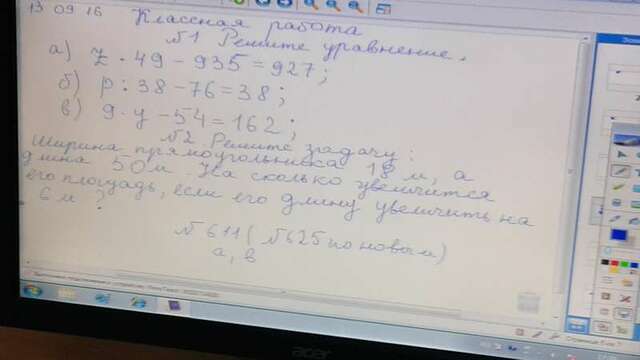 13 09 16 Классная работа
№1 Решите уравнение.
а) z · 49 - 935 = 927;
б) р : 38 - 76 = 38;
в) 9 · у - 54 = 162;
№2 Решите задачу:
Ширина прямоугольника 18 м, а
длина 50 м. На сколько увеличится
его площадь, если его длину увеличить на
6 м ?
№611 (№625 по новым)
а, в
acer